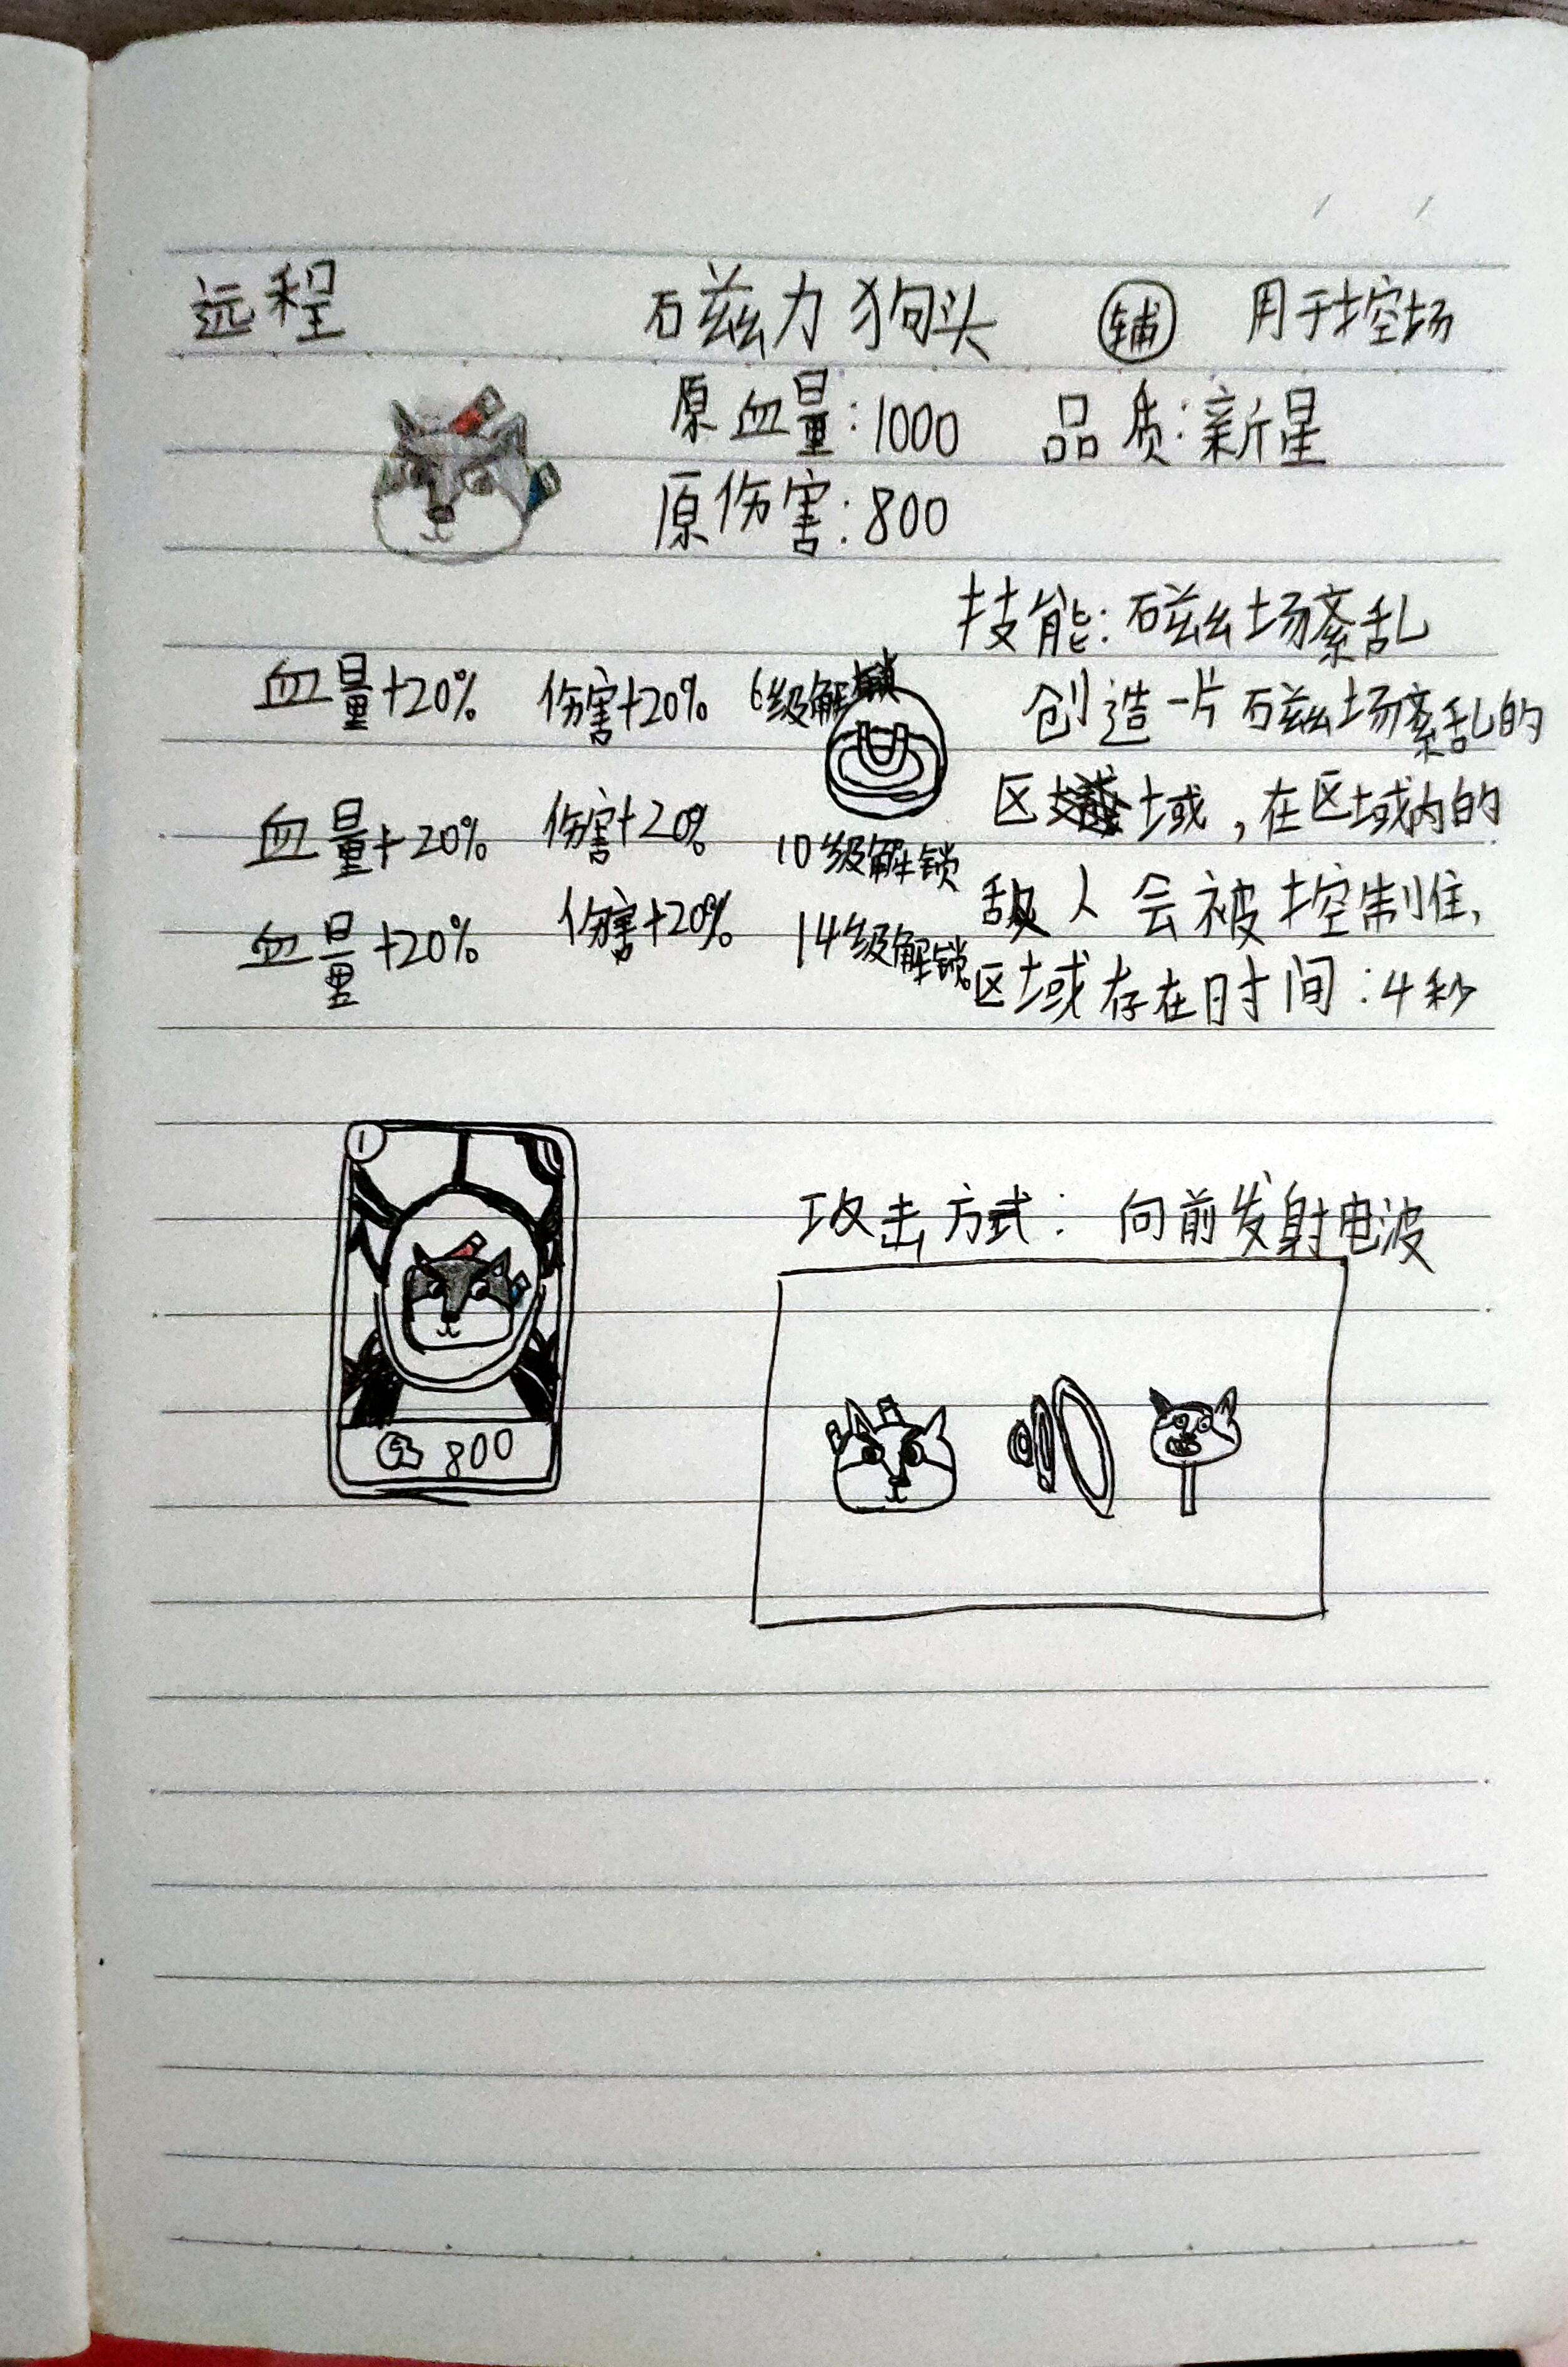 远程 磁力狗头 辅 用于控场
原血量:1000 品质:新星
原伤害:800
技能:磁场紊乱
血量+20% 伤害+20% 6级解锁 创造一片磁场紊乱的
区域,在区域内的
血量+20% 伤害+20% 10级解锁
敌人会被控制住,
血量+20% 伤害+20% 14级解锁
区域存在时间:4秒
1
攻击方式: 向前发射电波
800